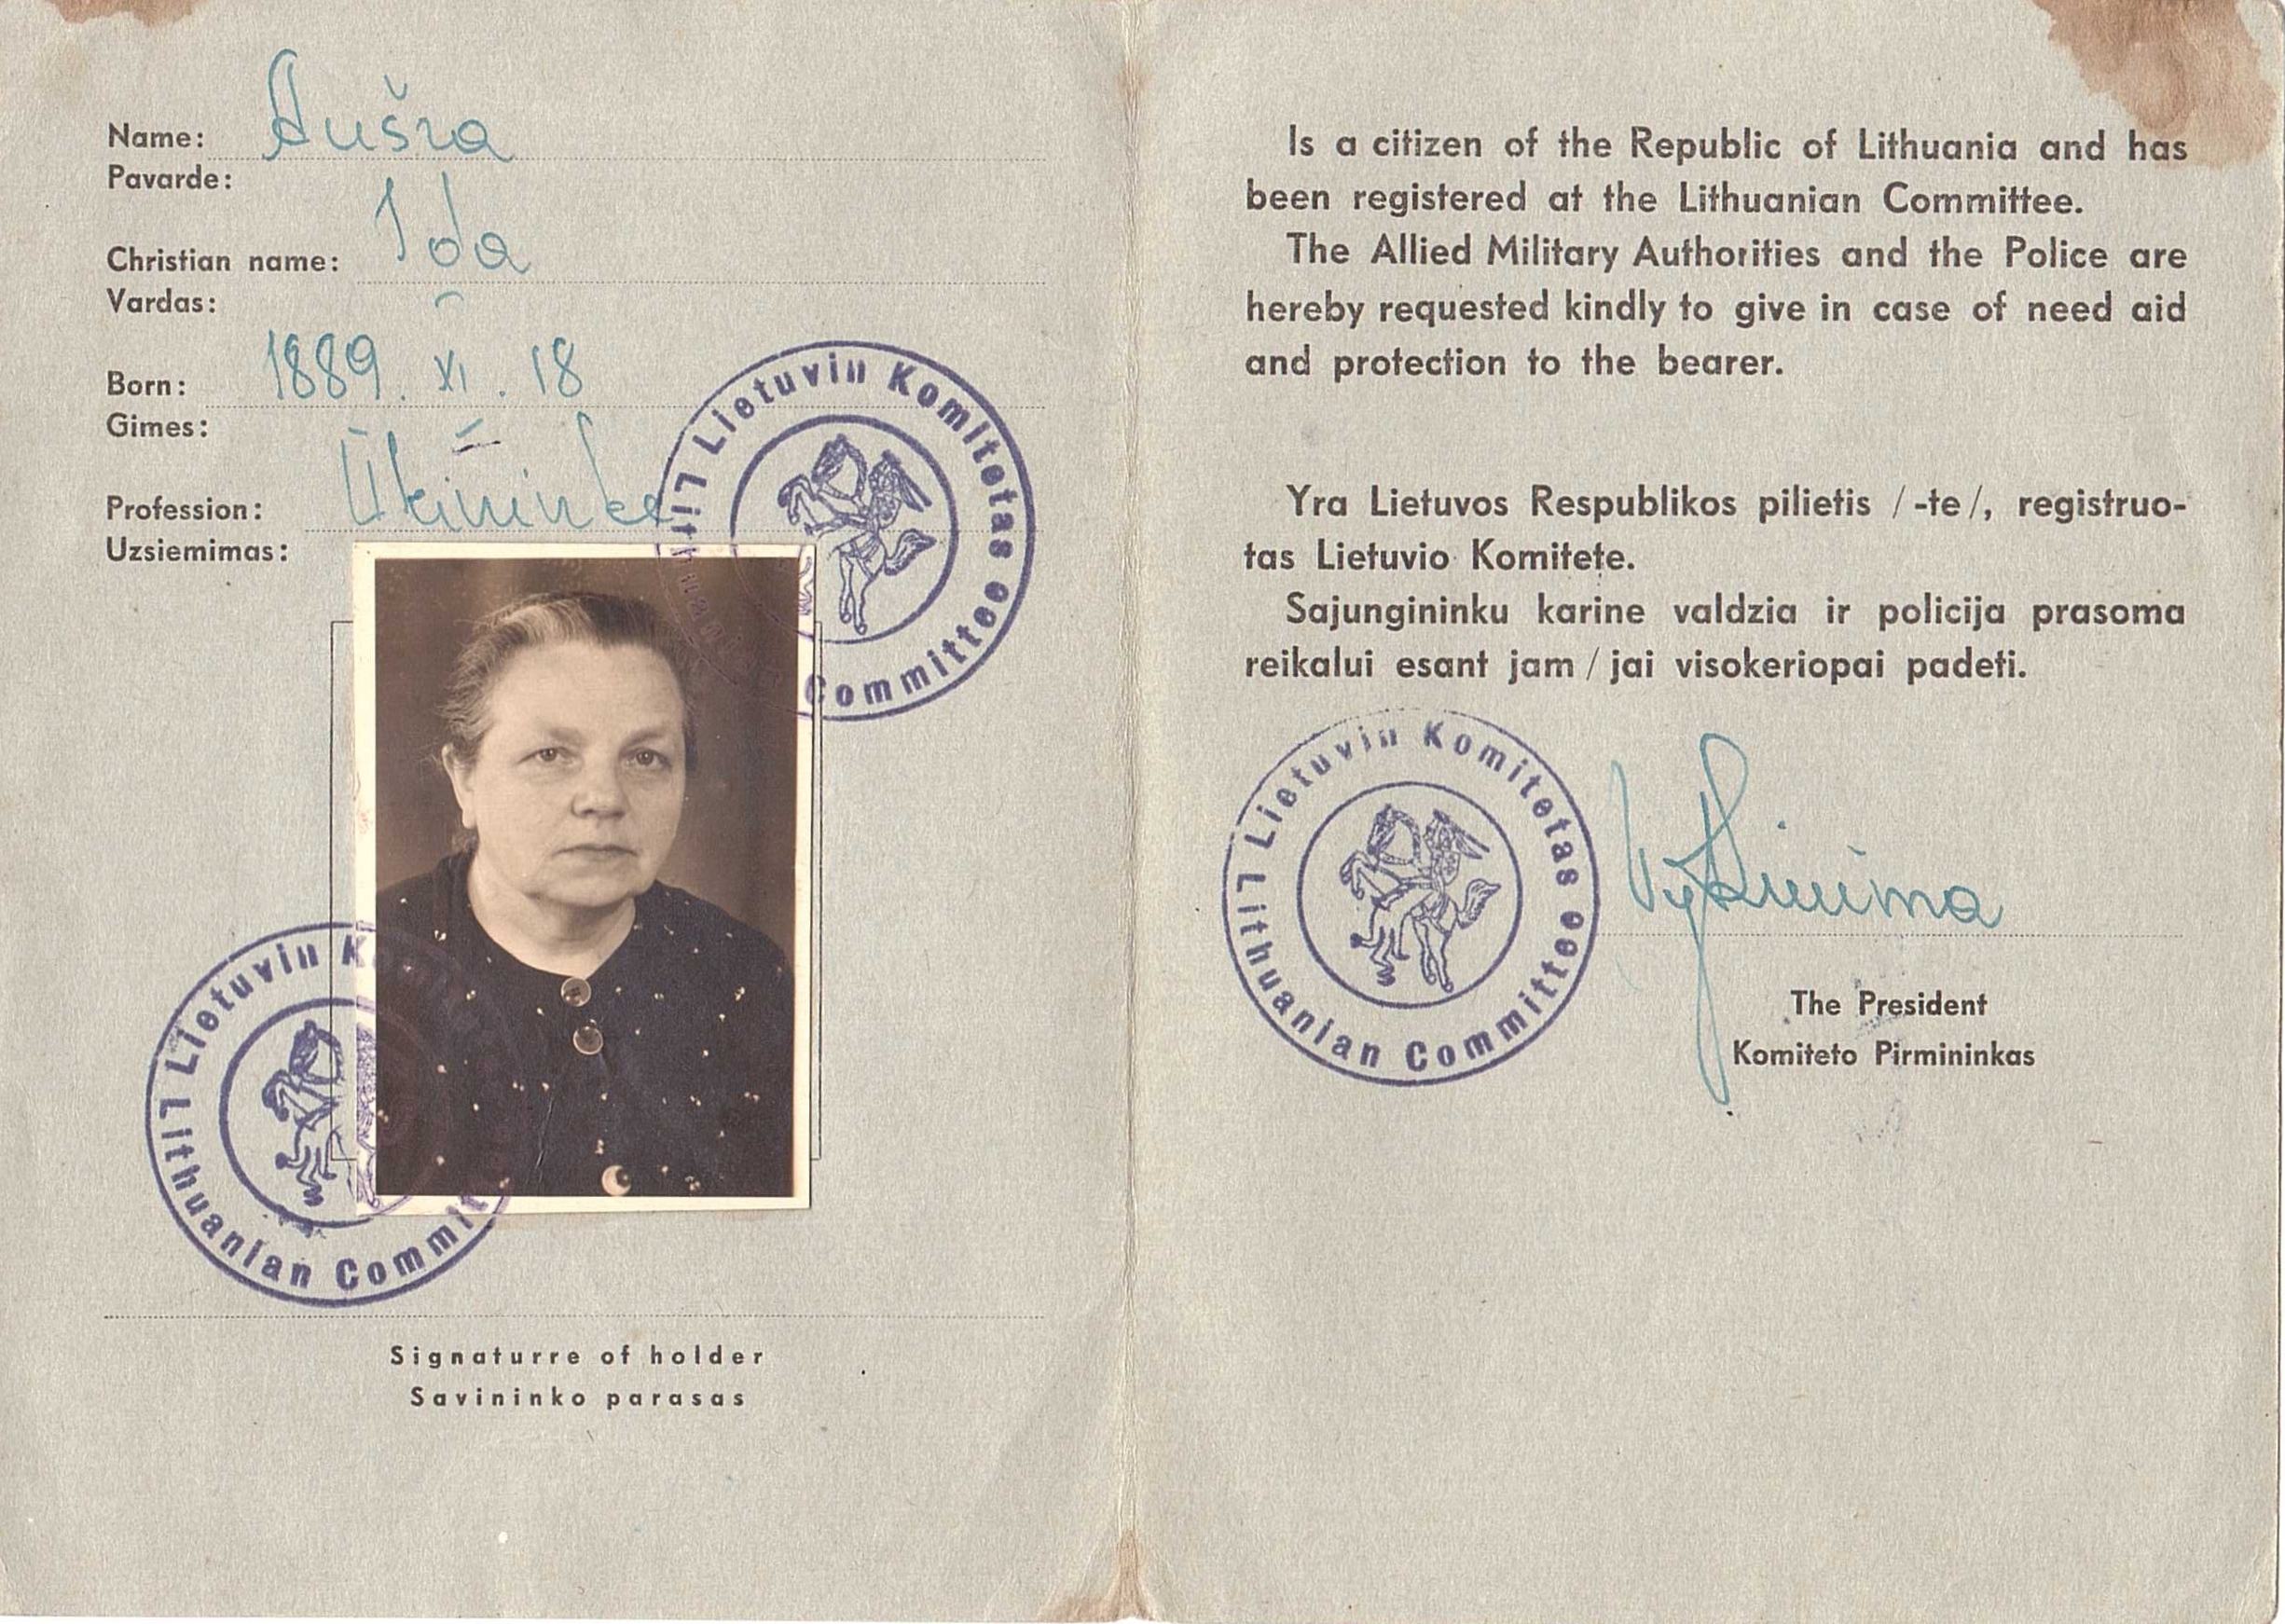 Name: Aušra
Pavarde:
Christian name: Ida
Vardas:
Born: 1889. XI. 18
Gimes:
Profession: Ūkininkė
Uzsiemimas:
Lietuvin Komitetas
Lithuanian Committee
Lietuvin K
Lithuanian Commit
Signaturre of holder
Savininko parasas
Is a citizen of the Republic of Lithuania and has
been registered at the Lithuanian Committee.
The Allied Military Authorities and the Police are
hereby requested kindly to give in case of need aid
and protection to the bearer.
Yra Lietuvos Respublikos pilietis / -te /, registruo-
tas Lietuvio Komitete.
Sajungininku karine valdzia ir policija prasoma
reikalui esant jam / jai visokeriopai padeti.
Lietuvin Komitetas
Lithuanian Committee
The President
Komiteto Pirmininkas